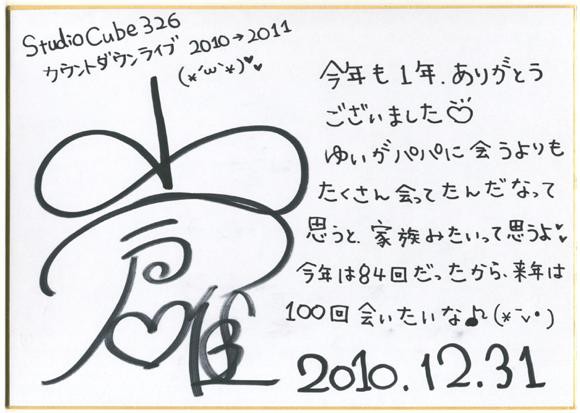 StudioCube326
カウントダウンライブ 2010→2011
(*´ω`*)♥♥
今年も1年、ありがとう
ございました♡
ゆいがパパに会うよりも
たくさん会ってたんだなって
思うと、家族みたいって思うよ♥
今年は84回だったから、来年は
100回会いたいな♪(*˘⌣˘•)
2010.12.31